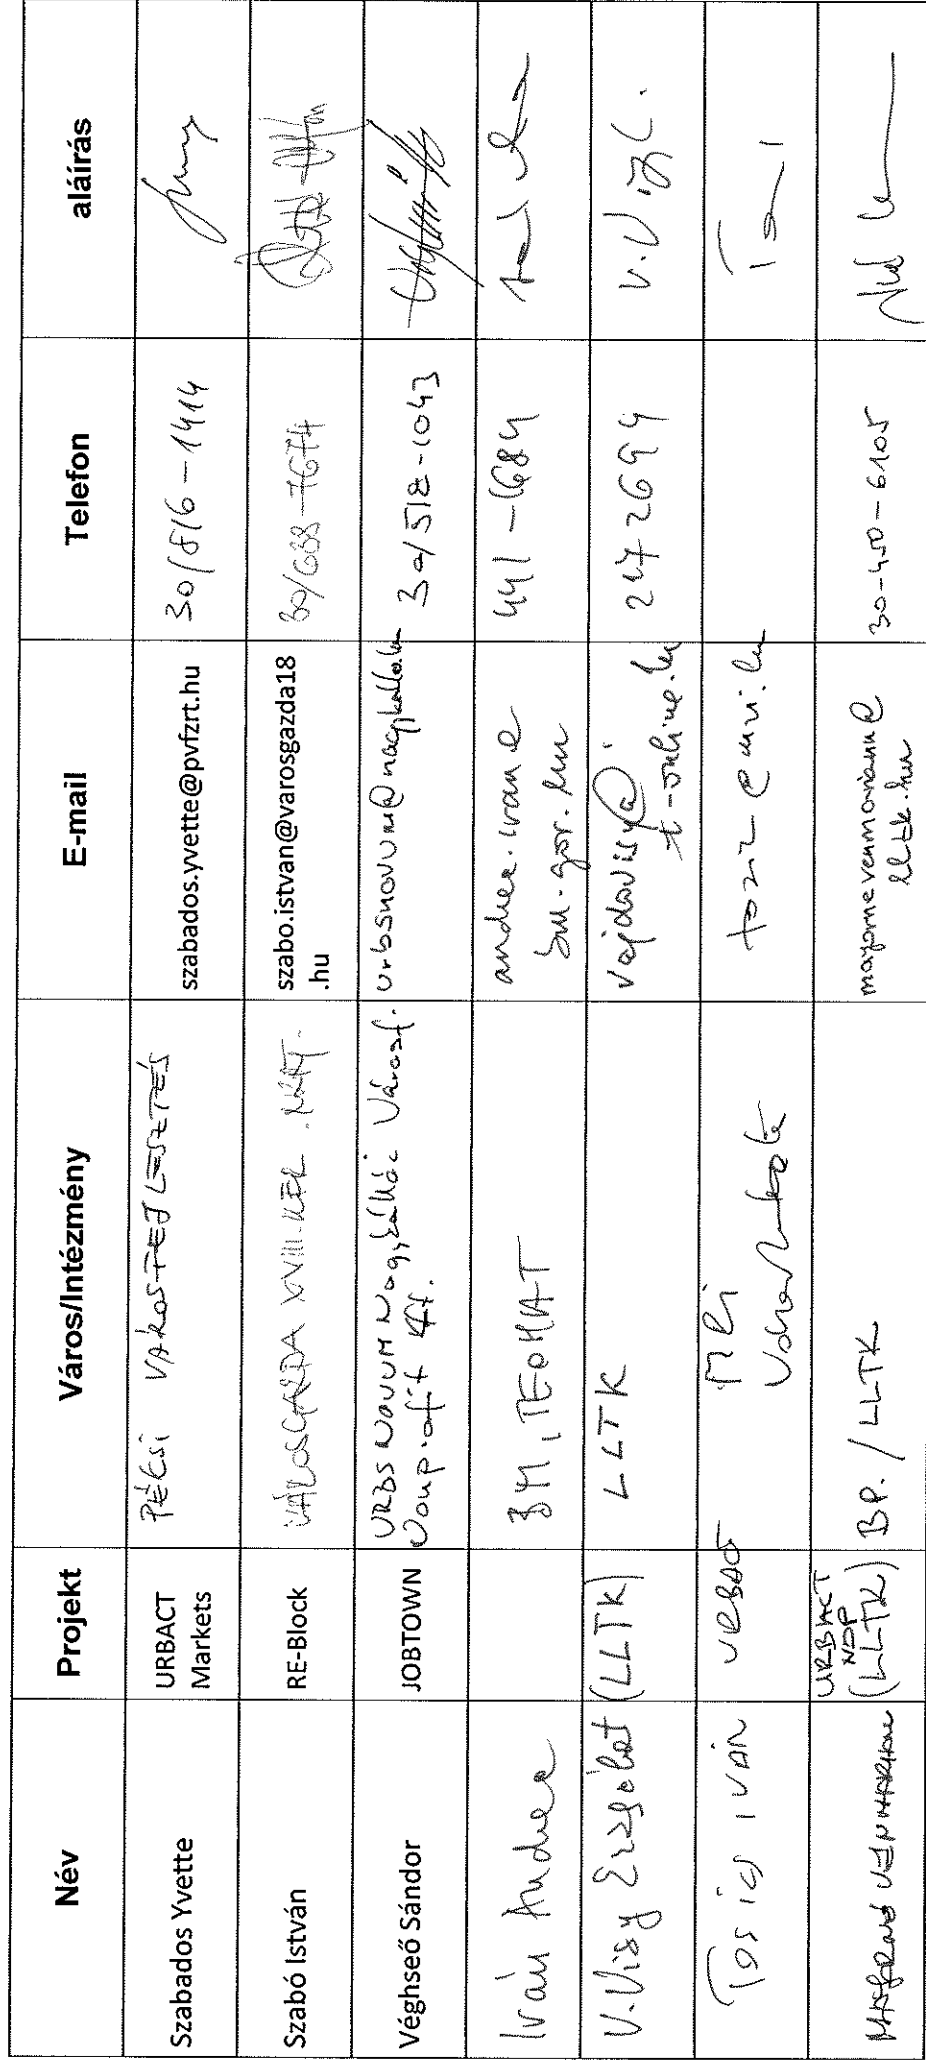 Név Projekt Város/Intézmény E-mail Telefon aláírás
Szabados Yvette URBACT Markets PÉCSI VÁROSFEJLESZTÉS szabados.yvette@pvfzrt.hu 30/816-1414
Szabó István RE-Block VÁROSGAZDA XVIII. KER. szabo.istvan@varosgazda18
.hu 30/638-7674
Véghseő Sándor JOBTOWN URBS NOVUM Nagykállói Városf.
Nonprofit Kft. urbsnovum@nagykallo.hu 30/518-1043
Iván Andrea BM, TEOHÁT andrea.ivan@
bm.gov.hu 441-1684
V. Visy Erzsébet (LLTK) LLTK vajdovisy@
t-online.hu 247 2699 V. Visy E.
Tosics Iván URBACT MRI
Városkutatás tosics@mri.hu
URBACT
NDP
(LLTK) BP. / LLTK mayernevenmariann@
lltk.hu 30-450-6105